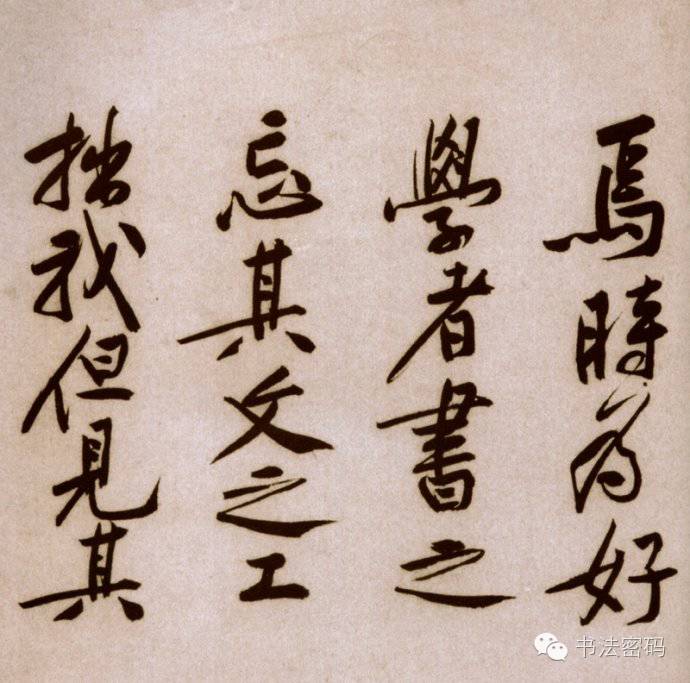 焉時為好
學者書之
忘其文之工
拙我但見其
书法密码